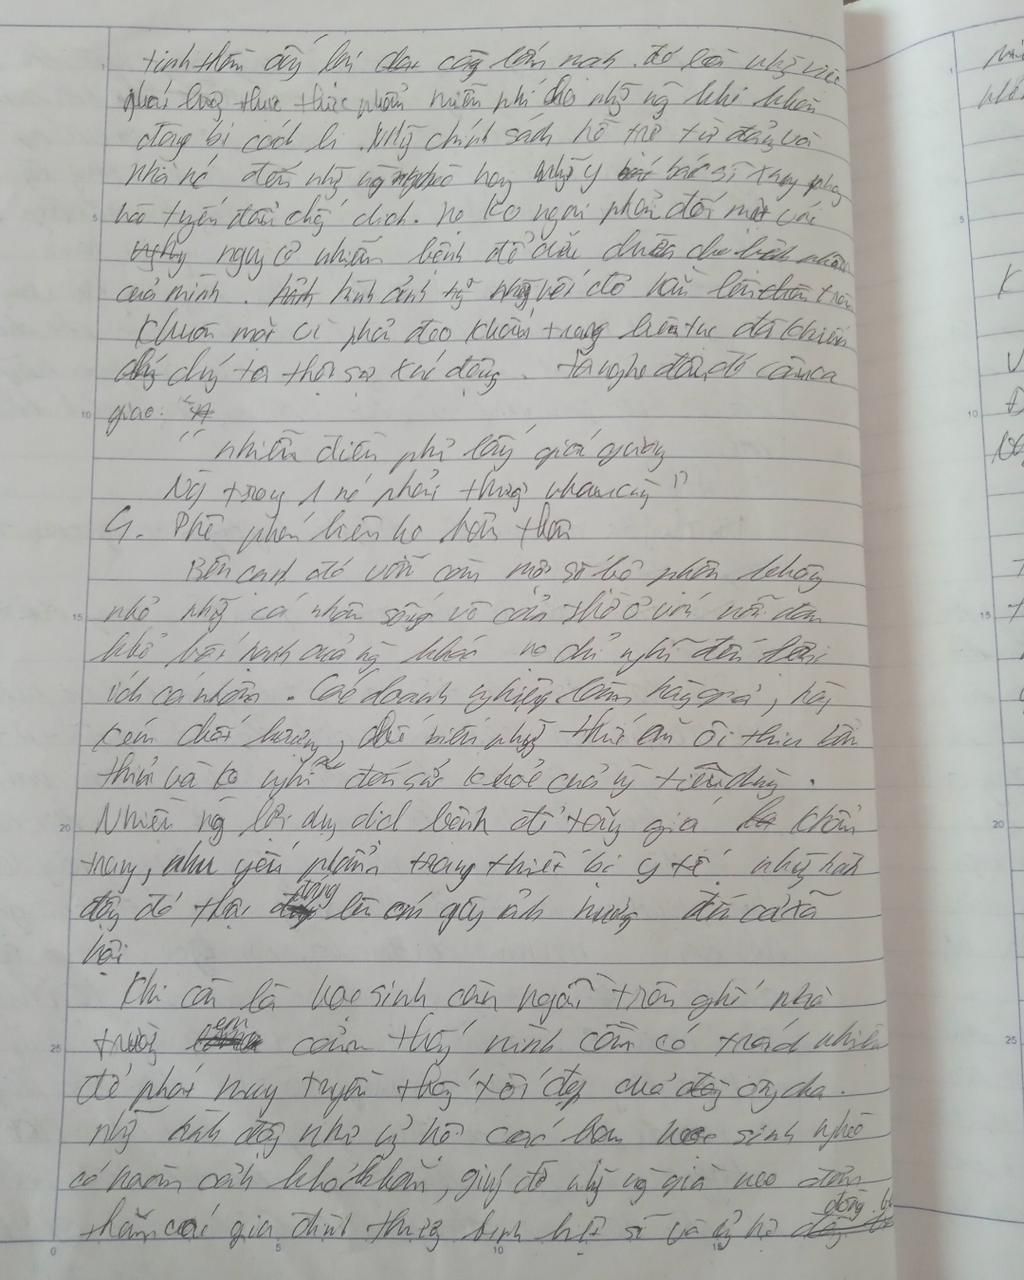 tinh thần ấy lại càng lớn mạnh. Đó là những việc
phát lương thực thực phẩm miễn phí cho những ng khó khăn
đang bị cách li. Những chính sách hỗ trợ từ đảng và
nhà nc đến những ng nghèo hay những y bác sĩ xung phong
vào tuyến đầu chống dịch. họ ko ngại phải đối mặt với
nguy cơ nhiễm bệnh để cứu chữa cho bệnh nhân
của mình. hình ảnh những vết đỏ hằn lên trên
khuôn mặt vì phải đeo khẩu trang liên tục đã khiến
chúng ta thật sự xúc động. Ta nghe đâu đó câu ca
giao:
" nhiễu điều phủ lấy giá gương
Ng trong 1 nc phải thương nhau cùng "
4. Phê phán liên hệ bản thân
Bên cạnh đó vẫn còn một số bộ phận không
nhỏ những cá nhân sống vô cảm thờ ơ với nỗi đau
khổ bất hạnh của ng khác họ chỉ nghĩ đến lợi
ích cá nhân. Các doanh nghiệp làm hàng giả, hàng
kém chất lượng, chế biến những thức ăn ôi thiu
và ko nghĩ đến sức khoẻ của ng tiêu dùng.
Nhiều ng lợi dụng dịch bệnh để tăng giá khẩu
trang, nhu yếu phẩm trang thiết bị y tế những hành
động đó thật đáng lên án gây ảnh hưởng đến cả xã
hội
Khi còn là học sinh còn ngồi trên ghế nhà
trường em cảm thấy mình cần có trách nhiệm
để phát huy truyền thống tốt đẹp của ông cha.
những hành động nhỏ ủng hộ các bạn học sinh nghèo
có hoàn cảnh khó khăn, giúp đỡ những ng già neo đơn
thăm các gia đình thương binh liệt sĩ và ủng hộ đồng